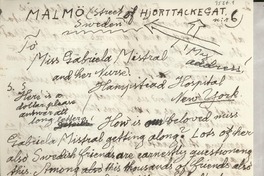 MALMÖ (street of HJORTTACKEGAT. 6
Sweden
To
My address!
Miss Gabriela Mistral
and her nurse.
Hampstead Hospital
New York
S. S.
Here is a
dollar please
answer all
long letter!
How is our beloved miss
Gabriela Mistral getting along? Lots of her
also Swedish friends are earnestly questioning
this. Among also this thousands of friends also